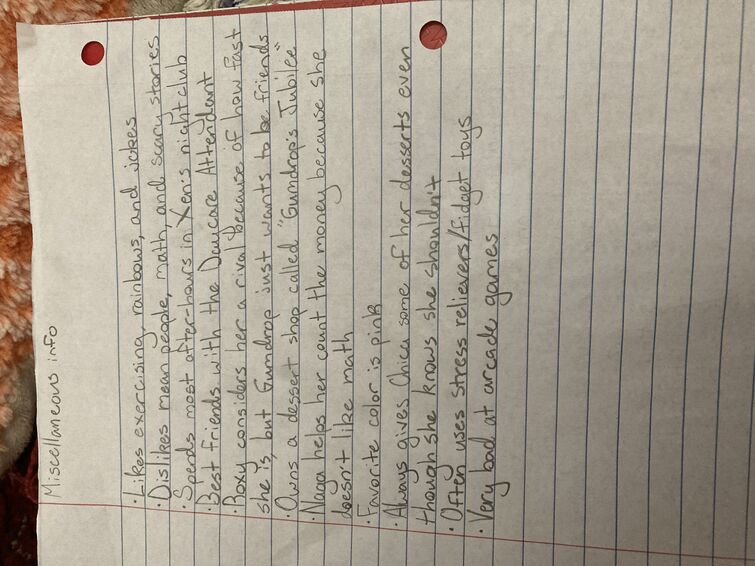 Miscellaneous info
·Likes exercising, rainbows, and jokes
·Dislikes mean people, math, and scary stories
·Spends most after-hours in Xen's night club
·Best friends with the Daycare Attendant
·Roxy considers her a rival because of how fast
she is, but Gumdrop just wants to be friends
·Owns a dessert shop called "Gumdrop's Jubilee"
·Nava helps her count the money because she
doesn't like math
·Favorite color is pink
·Always gives Chica some of her desserts even
though she knows she shouldn't
·Often uses stress relievers/fidget toys
·Very bad at arcade games